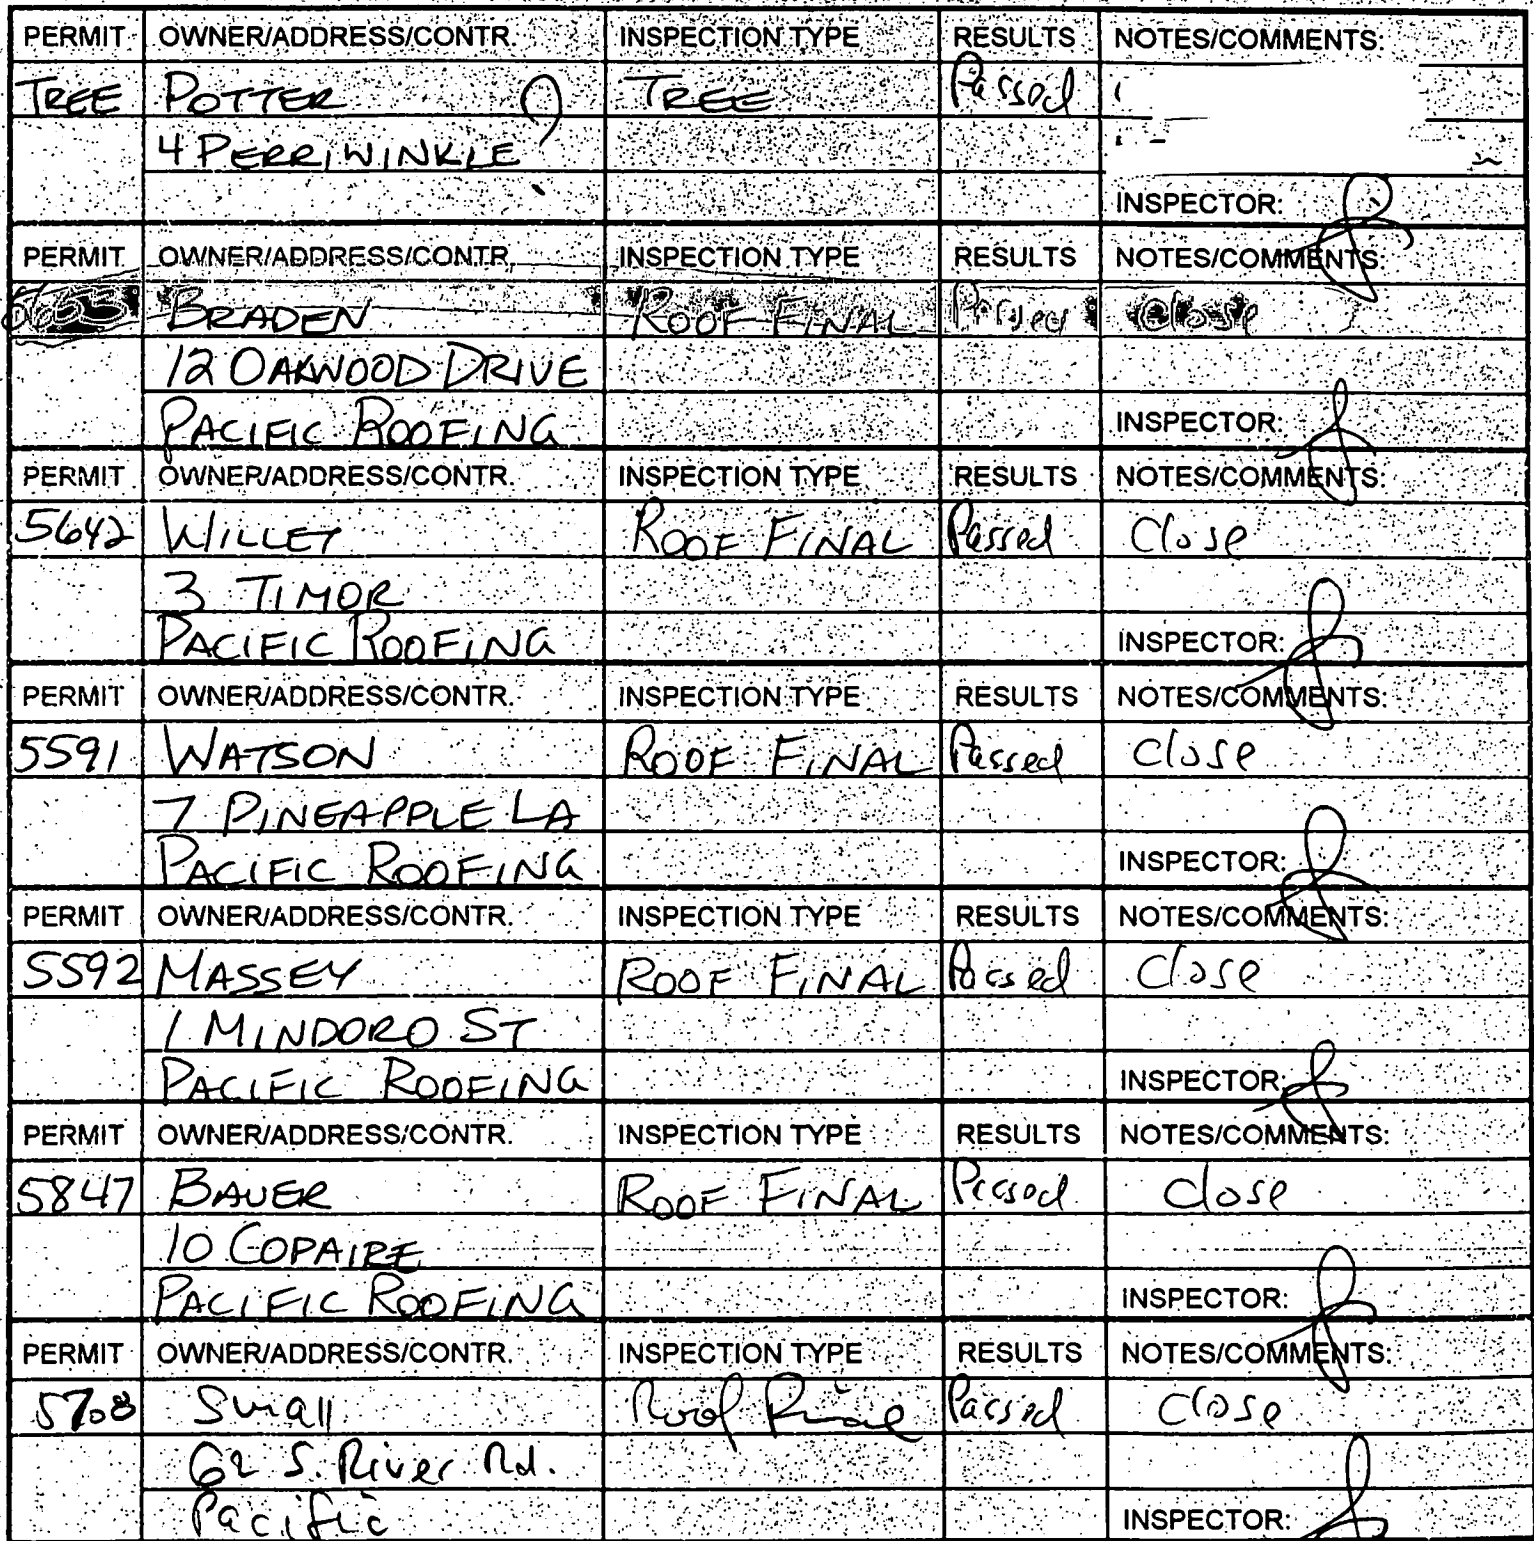 PERMIT OWNER/ADDRESS/CONTR. INSPECTION TYPE RESULTS NOTES/COMMENTS:
TREE POTTER TREE Passed
4 PERRIWINKLE
INSPECTOR:
PERMIT OWNER/ADDRESS/CONTR. INSPECTION TYPE RESULTS NOTES/COMMENTS:
BRADEN ROOF FINAL Passed Close
12 OAKWOOD DRIVE
PACIFIC ROOFING INSPECTOR:
PERMIT OWNER/ADDRESS/CONTR. INSPECTION TYPE RESULTS NOTES/COMMENTS:
5642 WILLET ROOF FINAL Passed Close
3 TIMOR
PACIFIC ROOFING INSPECTOR:
PERMIT OWNER/ADDRESS/CONTR. INSPECTION TYPE RESULTS NOTES/COMMENTS:
5591 WATSON ROOF FINAL Passed Close
7 PINEAPPLE LA
PACIFIC ROOFING INSPECTOR:
PERMIT OWNER/ADDRESS/CONTR. INSPECTION TYPE RESULTS NOTES/COMMENTS:
5592 MASSEY ROOF FINAL Passed Close
1 MINDORO ST
PACIFIC ROOFING INSPECTOR:
PERMIT OWNER/ADDRESS/CONTR. INSPECTION TYPE RESULTS NOTES/COMMENTS:
5847 BAUER ROOF FINAL Passed Close
10 COPAIRE
PACIFIC ROOFING INSPECTOR:
PERMIT OWNER/ADDRESS/CONTR. INSPECTION TYPE RESULTS NOTES/COMMENTS:
5708 Small Roof Final Passed Close
62 S. River Rd.
Pacific INSPECTOR: